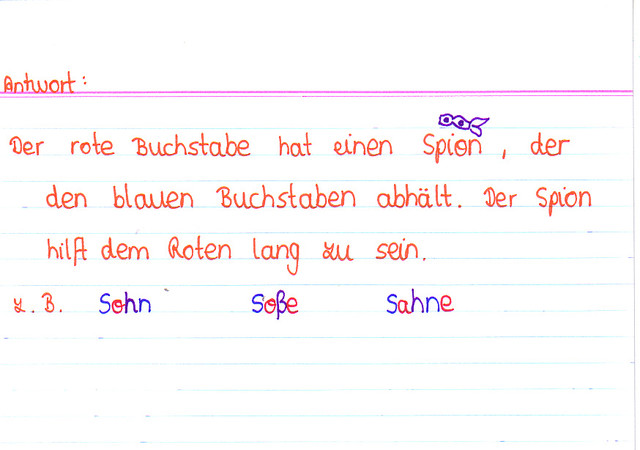 Antwort:
Der rote Buchstabe hat einen Spion, der
den blauen Buchstaben abhält. Der Spion
hilft dem Roten lang zu sein.
z. B. Sohn Soße Sahne